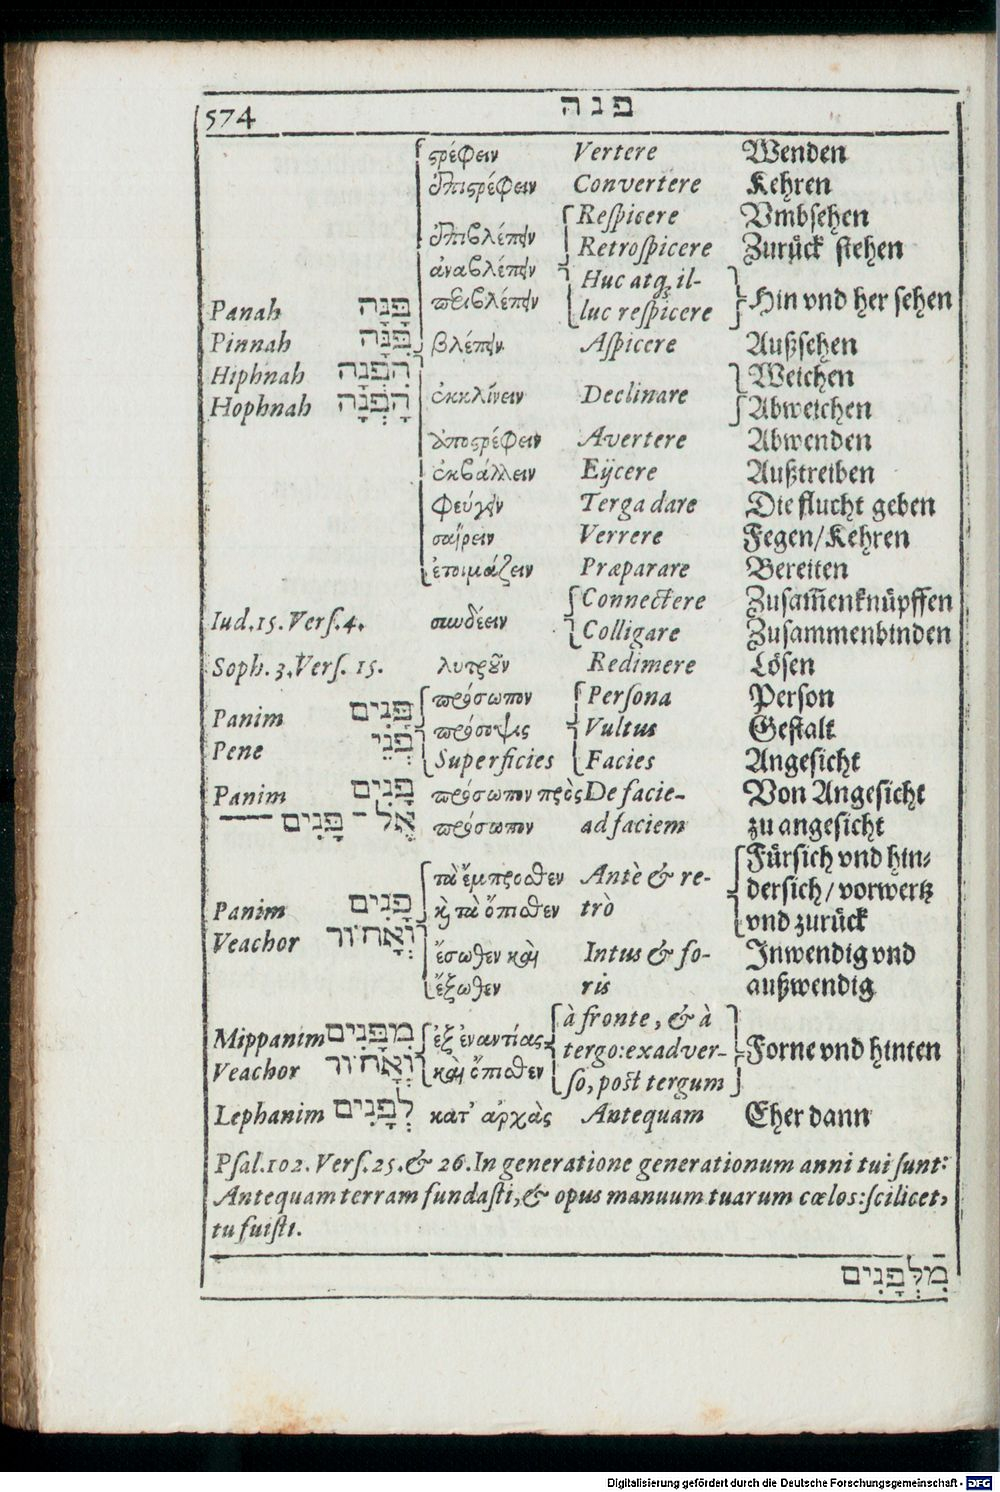 574 פנה
ςρέφειν Vertere Wenden
ἐπιςρέφειν Convertere Kehren
Reſpicere Vmbſehen
ἐπιβλέπειν Retroſpicere Zurück ſtehen
ἀναβλέπειν Huc atqꝫ il-
περιβλέπειν luc reſpicere Hin vnd her ſehen
Panah פָּנָה
Pinnah פִּנָּה βλέπειν Aſpicere Außſehen
Hiphnah הִפְנָה Weichen
Hophnah הָפְנָה ἐκκλίνειν Declinare Abweichen
ἀποςρέφειν Avertere Abwenden
ἐκβάλλειν Eijcere Außtreiben
φεύγειν Terga dare Die flucht geben
σαίρειν Verrere Fegen/Kehren
ἑτοιμάζειν Præparare Bereiten
Iud.15.Verſ.4. συνδέειν Connectere Zuſam̃enknüpffen
Colligare Zuſammenbinden
Soph.3.Verſ.15. λυτροῦν Redimere Löſen
πρόσωπον Perſona Perſon
Panim פָּנִים πρόσοψις Vultus Geſtalt
Pene פְּנֵי Superficies Facies Angeſicht
Panim פָּנִים πρόσωπον πρὸς De facie- Von Angeſicht
אֶל־פָּנִים πρόσωπον ad faciem zu angeſicht
Fürſich vnd hin-
τὰ ἔμπροσθεν Antè & re- derſich/vorwertz
Panim פָּנִים κὴ τὰ ὄπισθεν trò vnd zurück
Veachor וְאָחוֹר ἔσωθεν καὶ Intus & fo- Inwendig vnd
ἔξωθεν ris außwendig
à fronte, & à
Mippanim מִפָּנִים ἐξ ἐναντίας tergo:exadver- Forne vnd hinten
Veachor וְאָחוֹר καὶ ὄπισθεν ſo, poſt tergum
Lephanim לְפָנִים κατ' ἀρχὰς Antequam Eher dann
Pſal.102.Verſ.25.& 26.In generatione generationum anni tui ſunt:
Antequam terram fundaſti,& opus manuum tuarum cœlos:ſcilicet,
tu fuiſti.
מִלְּפָנִים
Digitalisierung gefördert durch die Deutsche Forschungsgemeinschaft - DFG